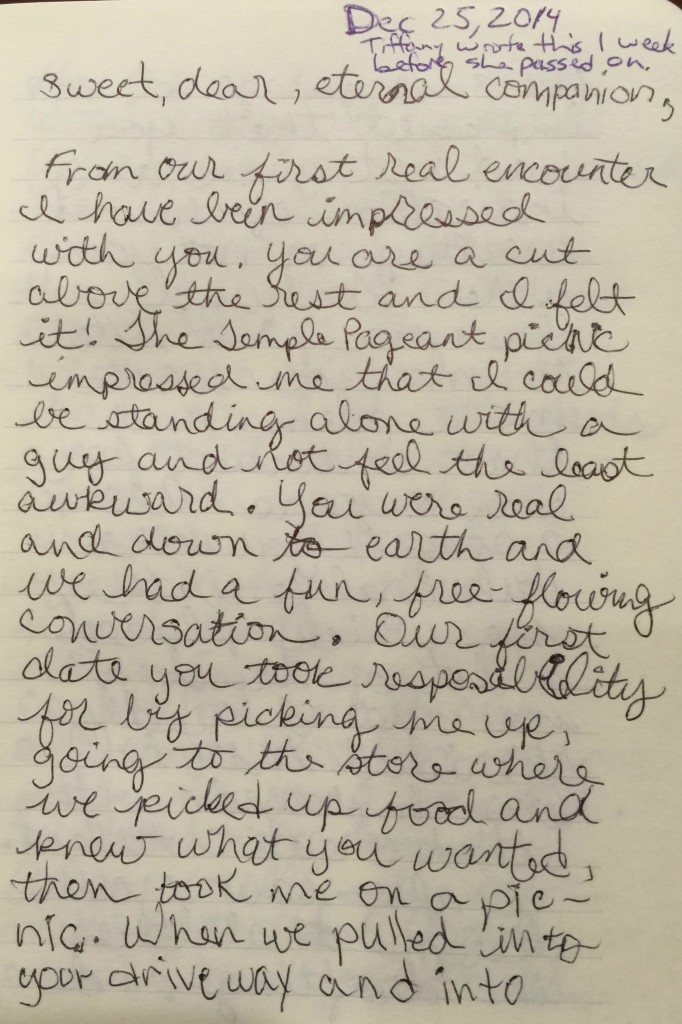 Dec 25, 2014
Tiffany wrote this 1 week
before she passed on.
sweet, dear, eternal companion,
From our first real encounter
I have been impressed
with you. You are a cut
above the rest and I felt
it! The Temple Pageant picnic
impressed me that I could
be standing alone with a
guy and not feel the least
awkward. You were real
and down to earth and
we had a fun, free-flowing
conversation. Our first
date you took resposibility
for by picking me up,
going to the store where
we picked up food and
knew what you wanted,
then took me on a pic-
nic. When we pulled into
your driveway and into